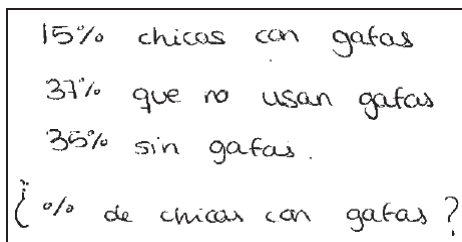 15% chicas con gafas
37% que no usan gafas
35% sin gafas.
¿% de chicas con gafas?